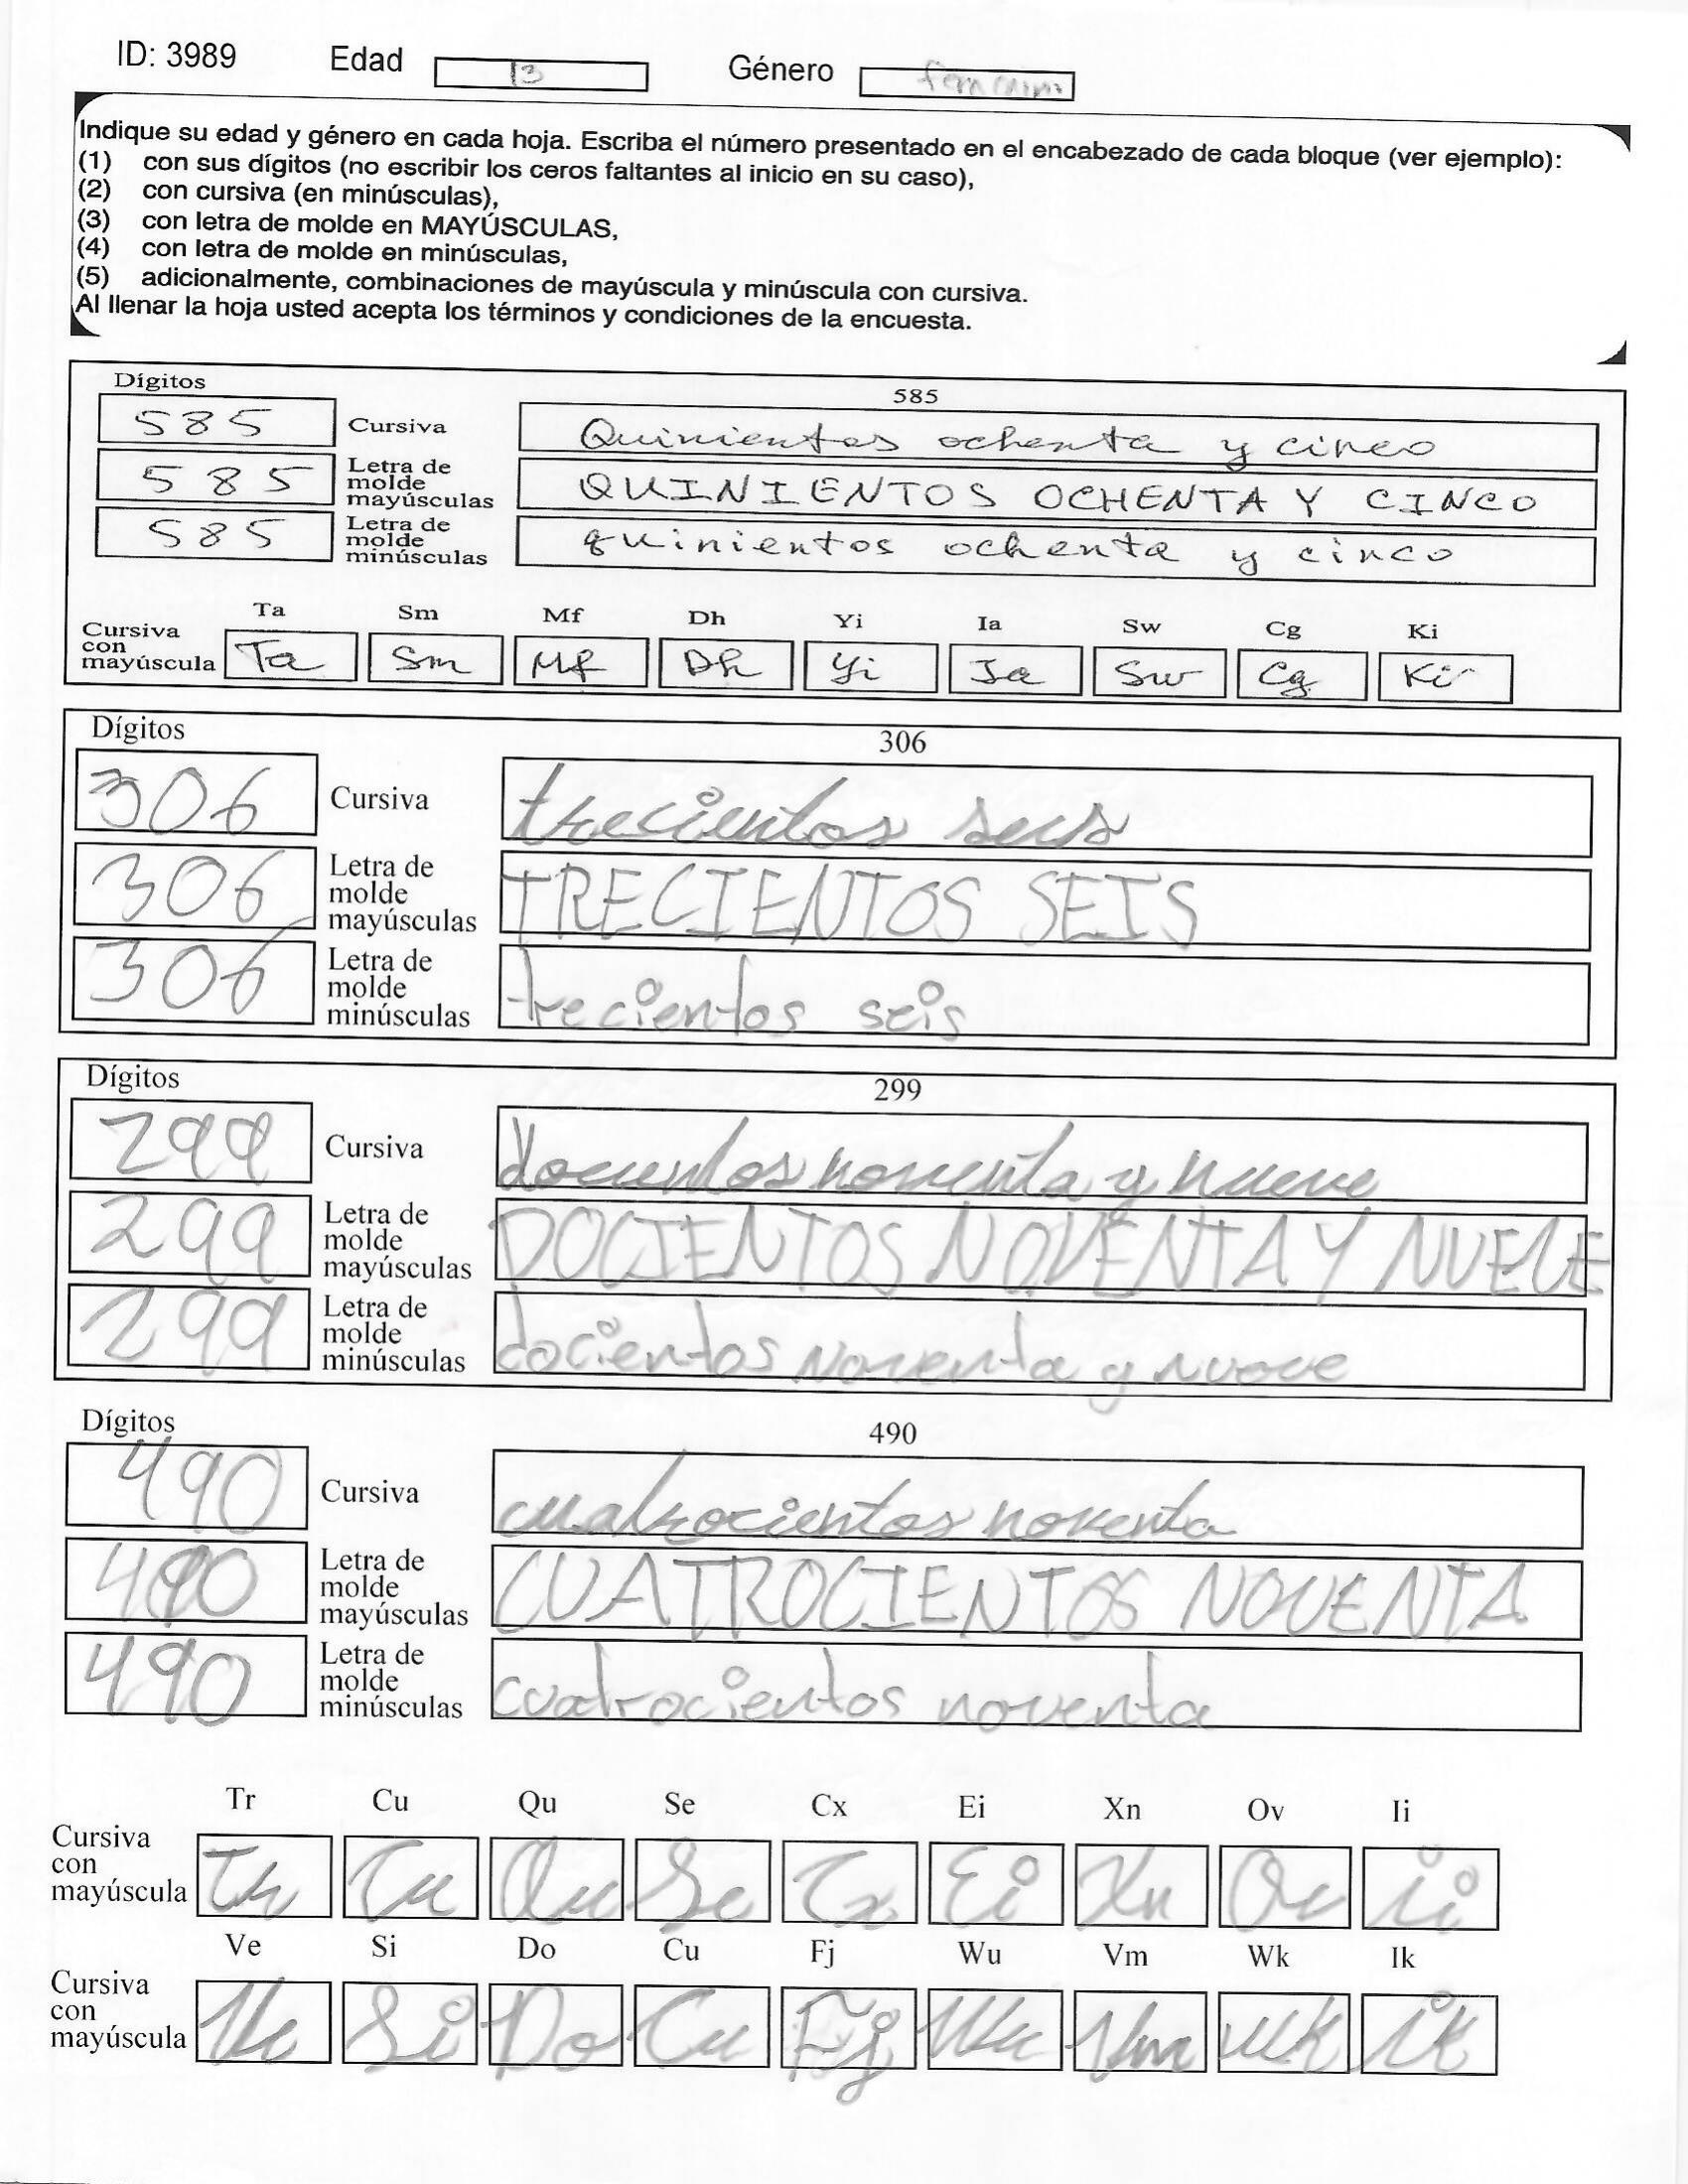 ID: 3989 Edad 13 Género femenino
Indique su edad y género en cada hoja. Escriba el número presentado en el encabezado de cada bloque (ver ejemplo):
(1) con sus dígitos (no escribir los ceros faltantes al inicio en su caso),
(2) con cursiva (en minúsculas),
(3) con letra de molde en MAYÚSCULAS,
(4) con letra de molde en minúsculas,
(5) adicionalmente, combinaciones de mayúscula y minúscula con cursiva.
Al llenar la hoja usted acepta los términos y condiciones de la encuesta.
Dígitos 585
585 Cursiva Quinientos ochenta y cinco
585 Letra de molde mayúsculas QUINIENTOS OCHENTA Y CINCO
585 Letra de molde minúsculas quinientos ochenta y cinco
Ta Sm Mf Dh Yi Ia Sw Cg Ki
Cursiva con mayúscula Ta Sm Mf Dh Yi Ia Sw Cg Ki
Dígitos 306
306 Cursiva trecientos seis
306 Letra de molde mayúsculas TRECIENTOS SEIS
306 Letra de molde minúsculas trecientos seis
Dígitos 299
299 Cursiva docientos noventa y nueve
299 Letra de molde mayúsculas DOCIENTOS NOVENTA Y NUEVE
299 Letra de molde minúsculas docientos noventa y nueve
Dígitos 490
490 Cursiva cuatrocientos noventa
490 Letra de molde mayúsculas CUATROCIENTOS NOVENTA
490 Letra de molde minúsculas cuatrocientos noventa
Tr Cu Qu Se Cx Ei Xn Ov Ii
Cursiva con mayúscula Tr Cu Qu Se Cx Ei Xn Ov ii
Ve Si Do Cu Fj Wu Vm Wk Ik
Cursiva con mayúscula Ve Si Do Cu Fj Wu Vm Wk ik